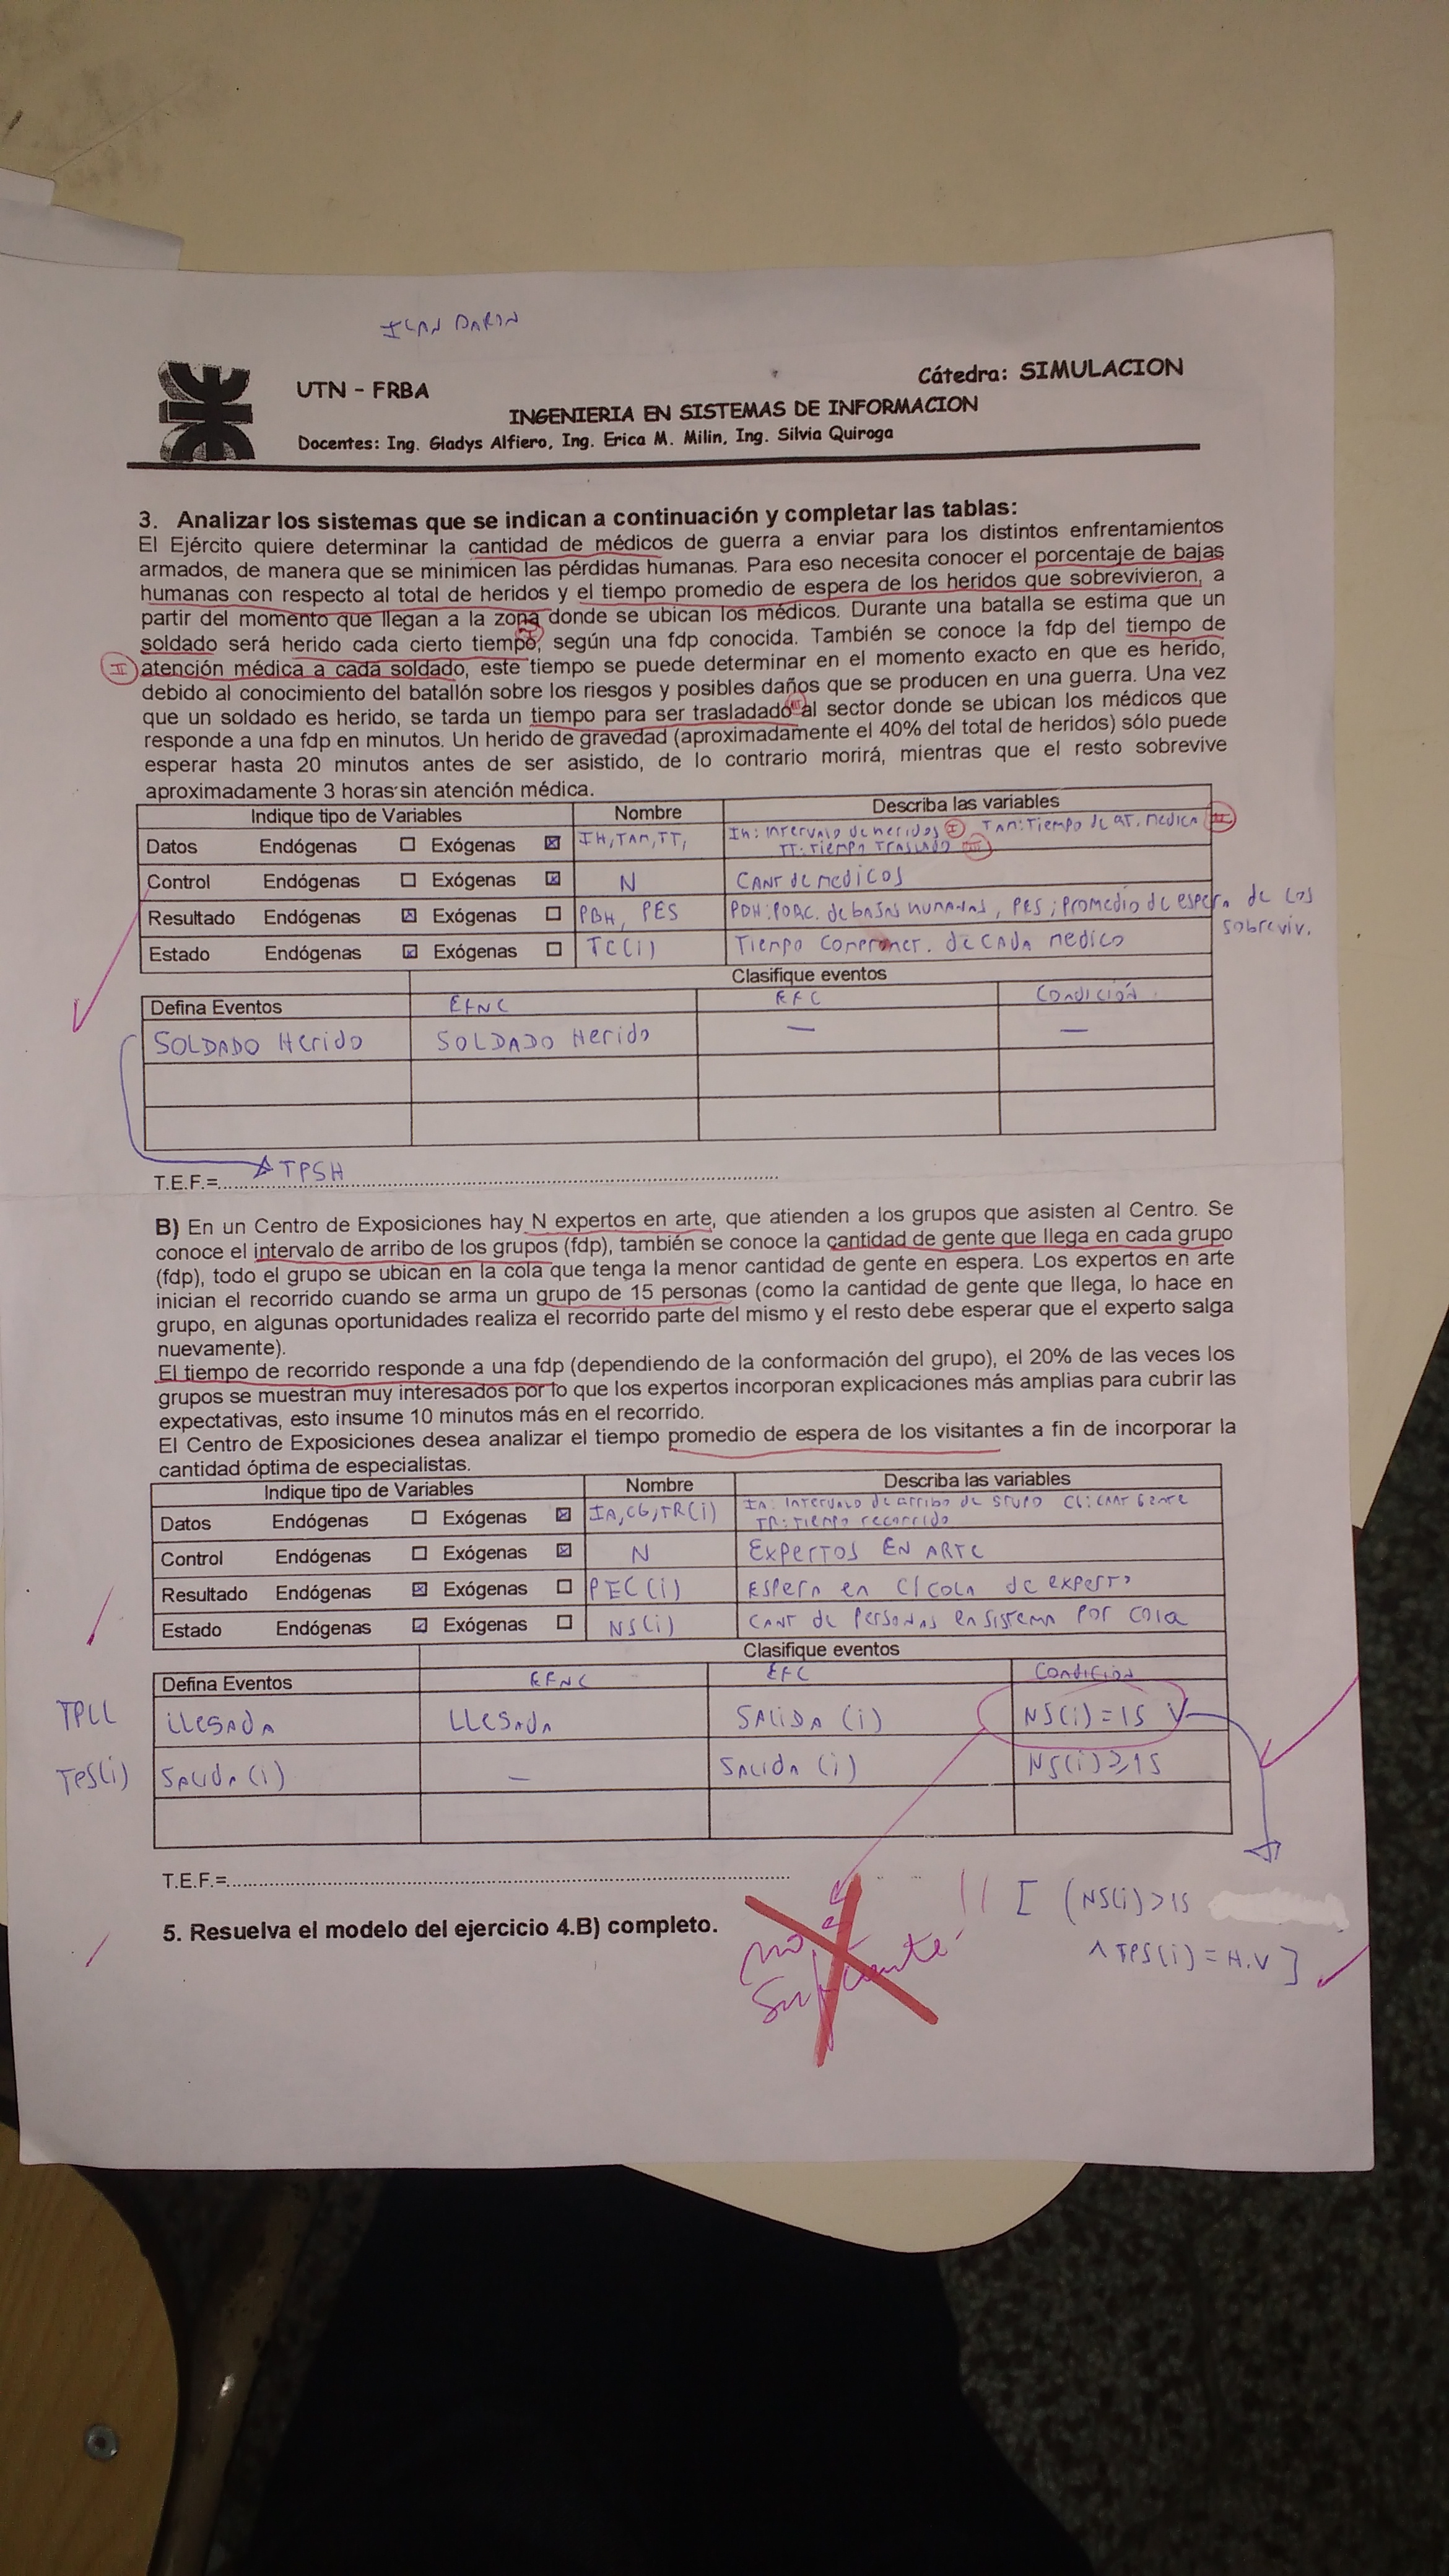 ILAN DARIN
UTN - FRBA
Cátedra: SIMULACION
INGENIERIA EN SISTEMAS DE INFORMACION
Docentes: Ing. Gladys Alfiero, Ing. Erica M. Milin, Ing. Silvia Quiroga
3. Analizar los sistemas que se indican a continuación y completar las tablas:
El Ejército quiere determinar la cantidad de médicos de guerra a enviar para los distintos enfrentamientos
armados, de manera que se minimicen las pérdidas humanas. Para eso necesita conocer el porcentaje de bajas
humanas con respecto al total de heridos y el tiempo promedio de espera de los heridos que sobrevivieron, a
partir del momento que llegan a la zona donde se ubican los médicos. Durante una batalla se estima que un
soldado será herido cada cierto tiempo, según una fdp conocida. También se conoce la fdp del tiempo de
II atención médica a cada soldado, este tiempo se puede determinar en el momento exacto en que es herido,
debido al conocimiento del batallón sobre los riesgos y posibles daños que se producen en una guerra. Una vez
que un soldado es herido, se tarda un tiempo para ser trasladado al sector donde se ubican los médicos que
responde a una fdp en minutos. Un herido de gravedad (aproximadamente el 40% del total de heridos) sólo puede
esperar hasta 20 minutos antes de ser asistido, de lo contrario morirá, mientras que el resto sobrevive
aproximadamente 3 horas sin atención médica.
Indique tipo de Variables Nombre Describa las variables
Datos Endógenas ☐ Exógenas ☒ IH, TAM, TT, IH: Intervalo de heridos I TAM: Tiempo de at. medica II
TT: Tiempo Traslado III
Control Endógenas ☐ Exógenas ☒ N Cant de medicos
Resultado Endógenas ☒ Exógenas ☐ PBH, PES PBH: Porc. de bajas humanas, PES: Promedio de espera de los
sobreviv.
Estado Endógenas ☒ Exógenas ☐ TC(i) Tiempo Compromet. de cada medico
Clasifique eventos
Defina Eventos EFNC EFC Condición
SOLDADO Herido SOLDADO Herido — —
T.E.F.= TPSH
B) En un Centro de Exposiciones hay N expertos en arte, que atienden a los grupos que asisten al Centro. Se
conoce el intervalo de arribo de los grupos (fdp), también se conoce la cantidad de gente que llega en cada grupo
(fdp), todo el grupo se ubican en la cola que tenga la menor cantidad de gente en espera. Los expertos en arte
inician el recorrido cuando se arma un grupo de 15 personas (como la cantidad de gente que llega, lo hace en
grupo, en algunas oportunidades realiza el recorrido parte del mismo y el resto debe esperar que el experto salga
nuevamente).
El tiempo de recorrido responde a una fdp (dependiendo de la conformación del grupo), el 20% de las veces los
grupos se muestran muy interesados por lo que los expertos incorporan explicaciones más amplias para cubrir las
expectativas, esto insume 10 minutos más en el recorrido.
El Centro de Exposiciones desea analizar el tiempo promedio de espera de los visitantes a fin de incorporar la
cantidad óptima de especialistas.
Indique tipo de Variables Nombre Describa las variables
Datos Endógenas ☐ Exógenas ☒ IA, CG, TR(i) IA: Intervalo de arribo de grupo CG: cant gente
TR: Tiempo recorrido
Control Endógenas ☐ Exógenas ☒ N Expertos EN ARTE
Resultado Endógenas ☒ Exógenas ☐ PEC(i) Espera en c/cola de experto
Estado Endógenas ☒ Exógenas ☐ NS(i) Cant de personas en sistema por cola
Clasifique eventos
Defina Eventos EFNC EFC Condición
TPLL LLegada LLegada SALIDA (i) NS(i)=15 V
TPS(i) SALIDA (i) — SALIDA (i) NS(i)≥15
T.E.F.=
[ (NS(i)>15
∧ TPS(i) = H.V ]
5. Resuelva el modelo del ejercicio 4.B) completo.
no es
suficiente!